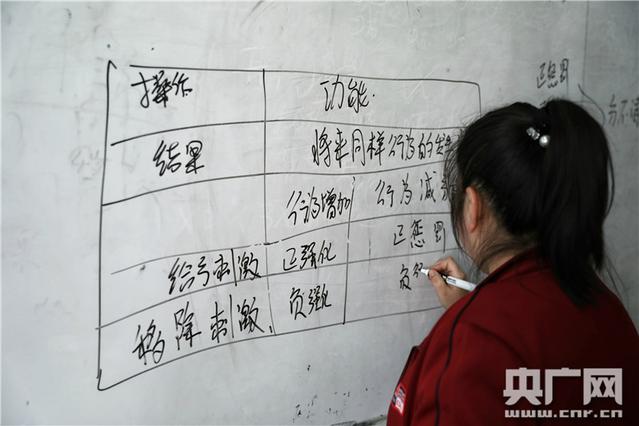 操作 功能
结果 将来同样行为的发
行为增加 行为减
给予刺激 正强化 正惩罚
移除刺激 负强化 负
正惩罚
央广网
www.cnr.cn